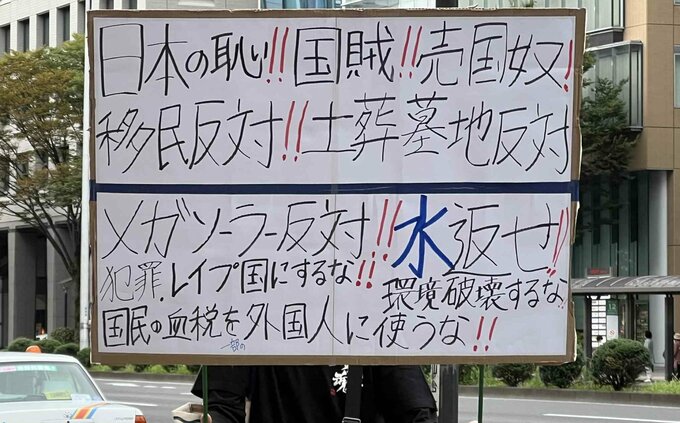 日本の恥!!国賊!!売国奴!
移民反対!!土葬墓地反対
メガソーラー反対!!水返せ!!
犯罪、レイプ国にするな!!環境破壊するな!
国民の血税を外国人に使うな!!
一部の